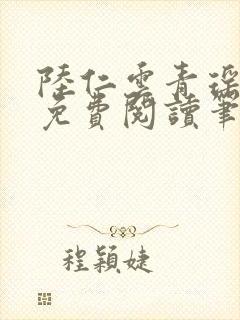 陸仁雲青瑤
免費閱讀筆
程穎婕